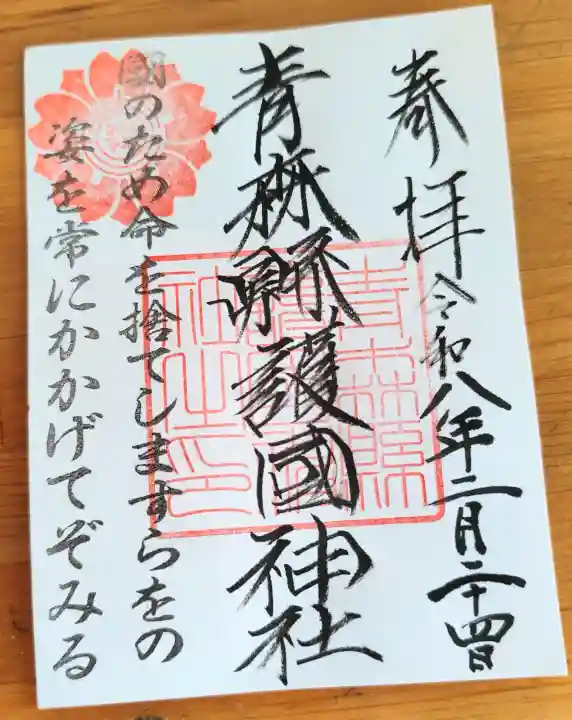 奉拝
令和八年二月二十四日
青森縣護國神社
國のため命を捨てしますらをの
姿を常にかかげてぞみる